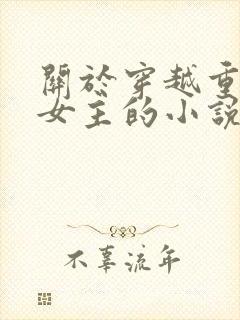 關於穿越重
女主的小說
不辜流年